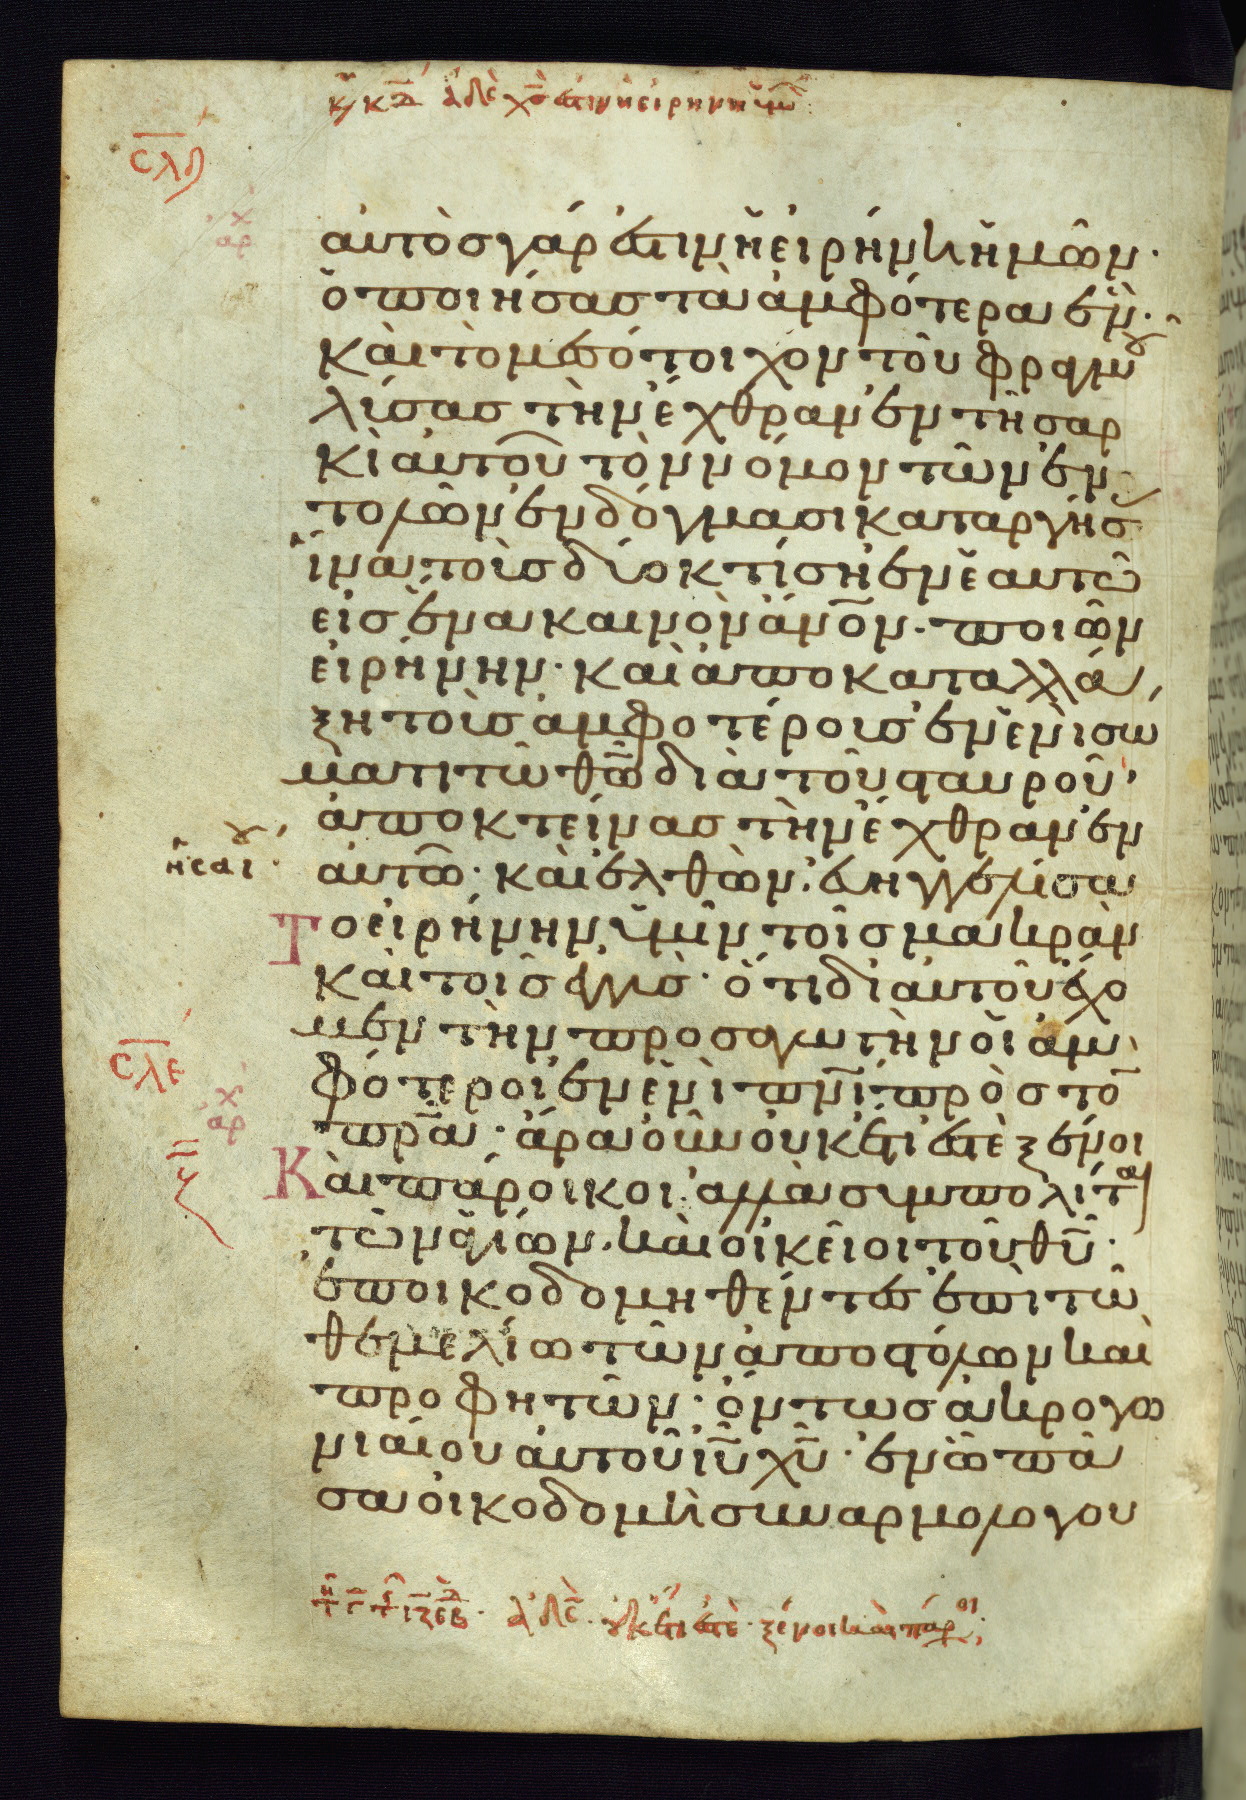 κυ κδ ἀδε χς ἐστιν ἡ εἰρήνη ἡμῶ
σλδ
χ
αρ
αυτὸσ γάρ ἐστιν ἡ εἰρήνη ἡμῶν·
ὁ ποιήσασ τὰ ἀμφότερα ἕν·
καὶ τὸ μεσότοιχον τοῦ φραγμοῦ
λύσασ τὴν ἔχθραν ἐν τῆ σαρ
κὶ αυτοῦ τὸν νόμον τῶν ἐν
τολῶν ἐν δόγμασι καταργήσ
ἵνα τοὺσ δύο κτίση ἐν ἑαυτῶ
εἰσ ἕνα καινὸν ἄνον· ποιῶν
εἰρήνην· καὶ ἀποκαταλλά
ξη τοὺσ ἀμφοτέρουσ ἐν ἑνὶ σώ
ματι τῶ θῶ διὰ τοῦ σταυροῦ·
ἀποκτείνασ τὴν ἔχθραν ἐν
αυτῶ· καὶ ἐλθὼν· ἐυηγγελίσα
το εἰρήνην ὑμῖν τοῖσ μακρὰν
καὶ τοῖσ ἐγγὺσ· ὅτι δι αυτοῦ ἔχο
μεν τὴν προσαγωγὴν ὁι ἀμ
φότεροι ἐν ἑνὶ πνι· πρὸσ τὸ
σλε
χ
αρ
πρα· ἄρα οὖν οὐκ ἔτι ἐστὲ ξένοι
Καὶ πάροικοι· ἀλλὰ συμπολίται
τῶν ἁγίων· καὶ οἰκεῖοι τοῦ θυ·
ἐποικοδομηθέντεσ ἐπὶ τῶ
θεμελίω τῶν ἀποστόλων καὶ
προφητῶν· ὄντωσ ἀκρογω
νιαίου αυτοῦ ιυ χυ· ἐν ὧ πᾶ
σα οἰκοδομὴ συναρμολογου
ἀδε· οὐκ ἔτι ἐστὲ ξένοι καὶ πάροι